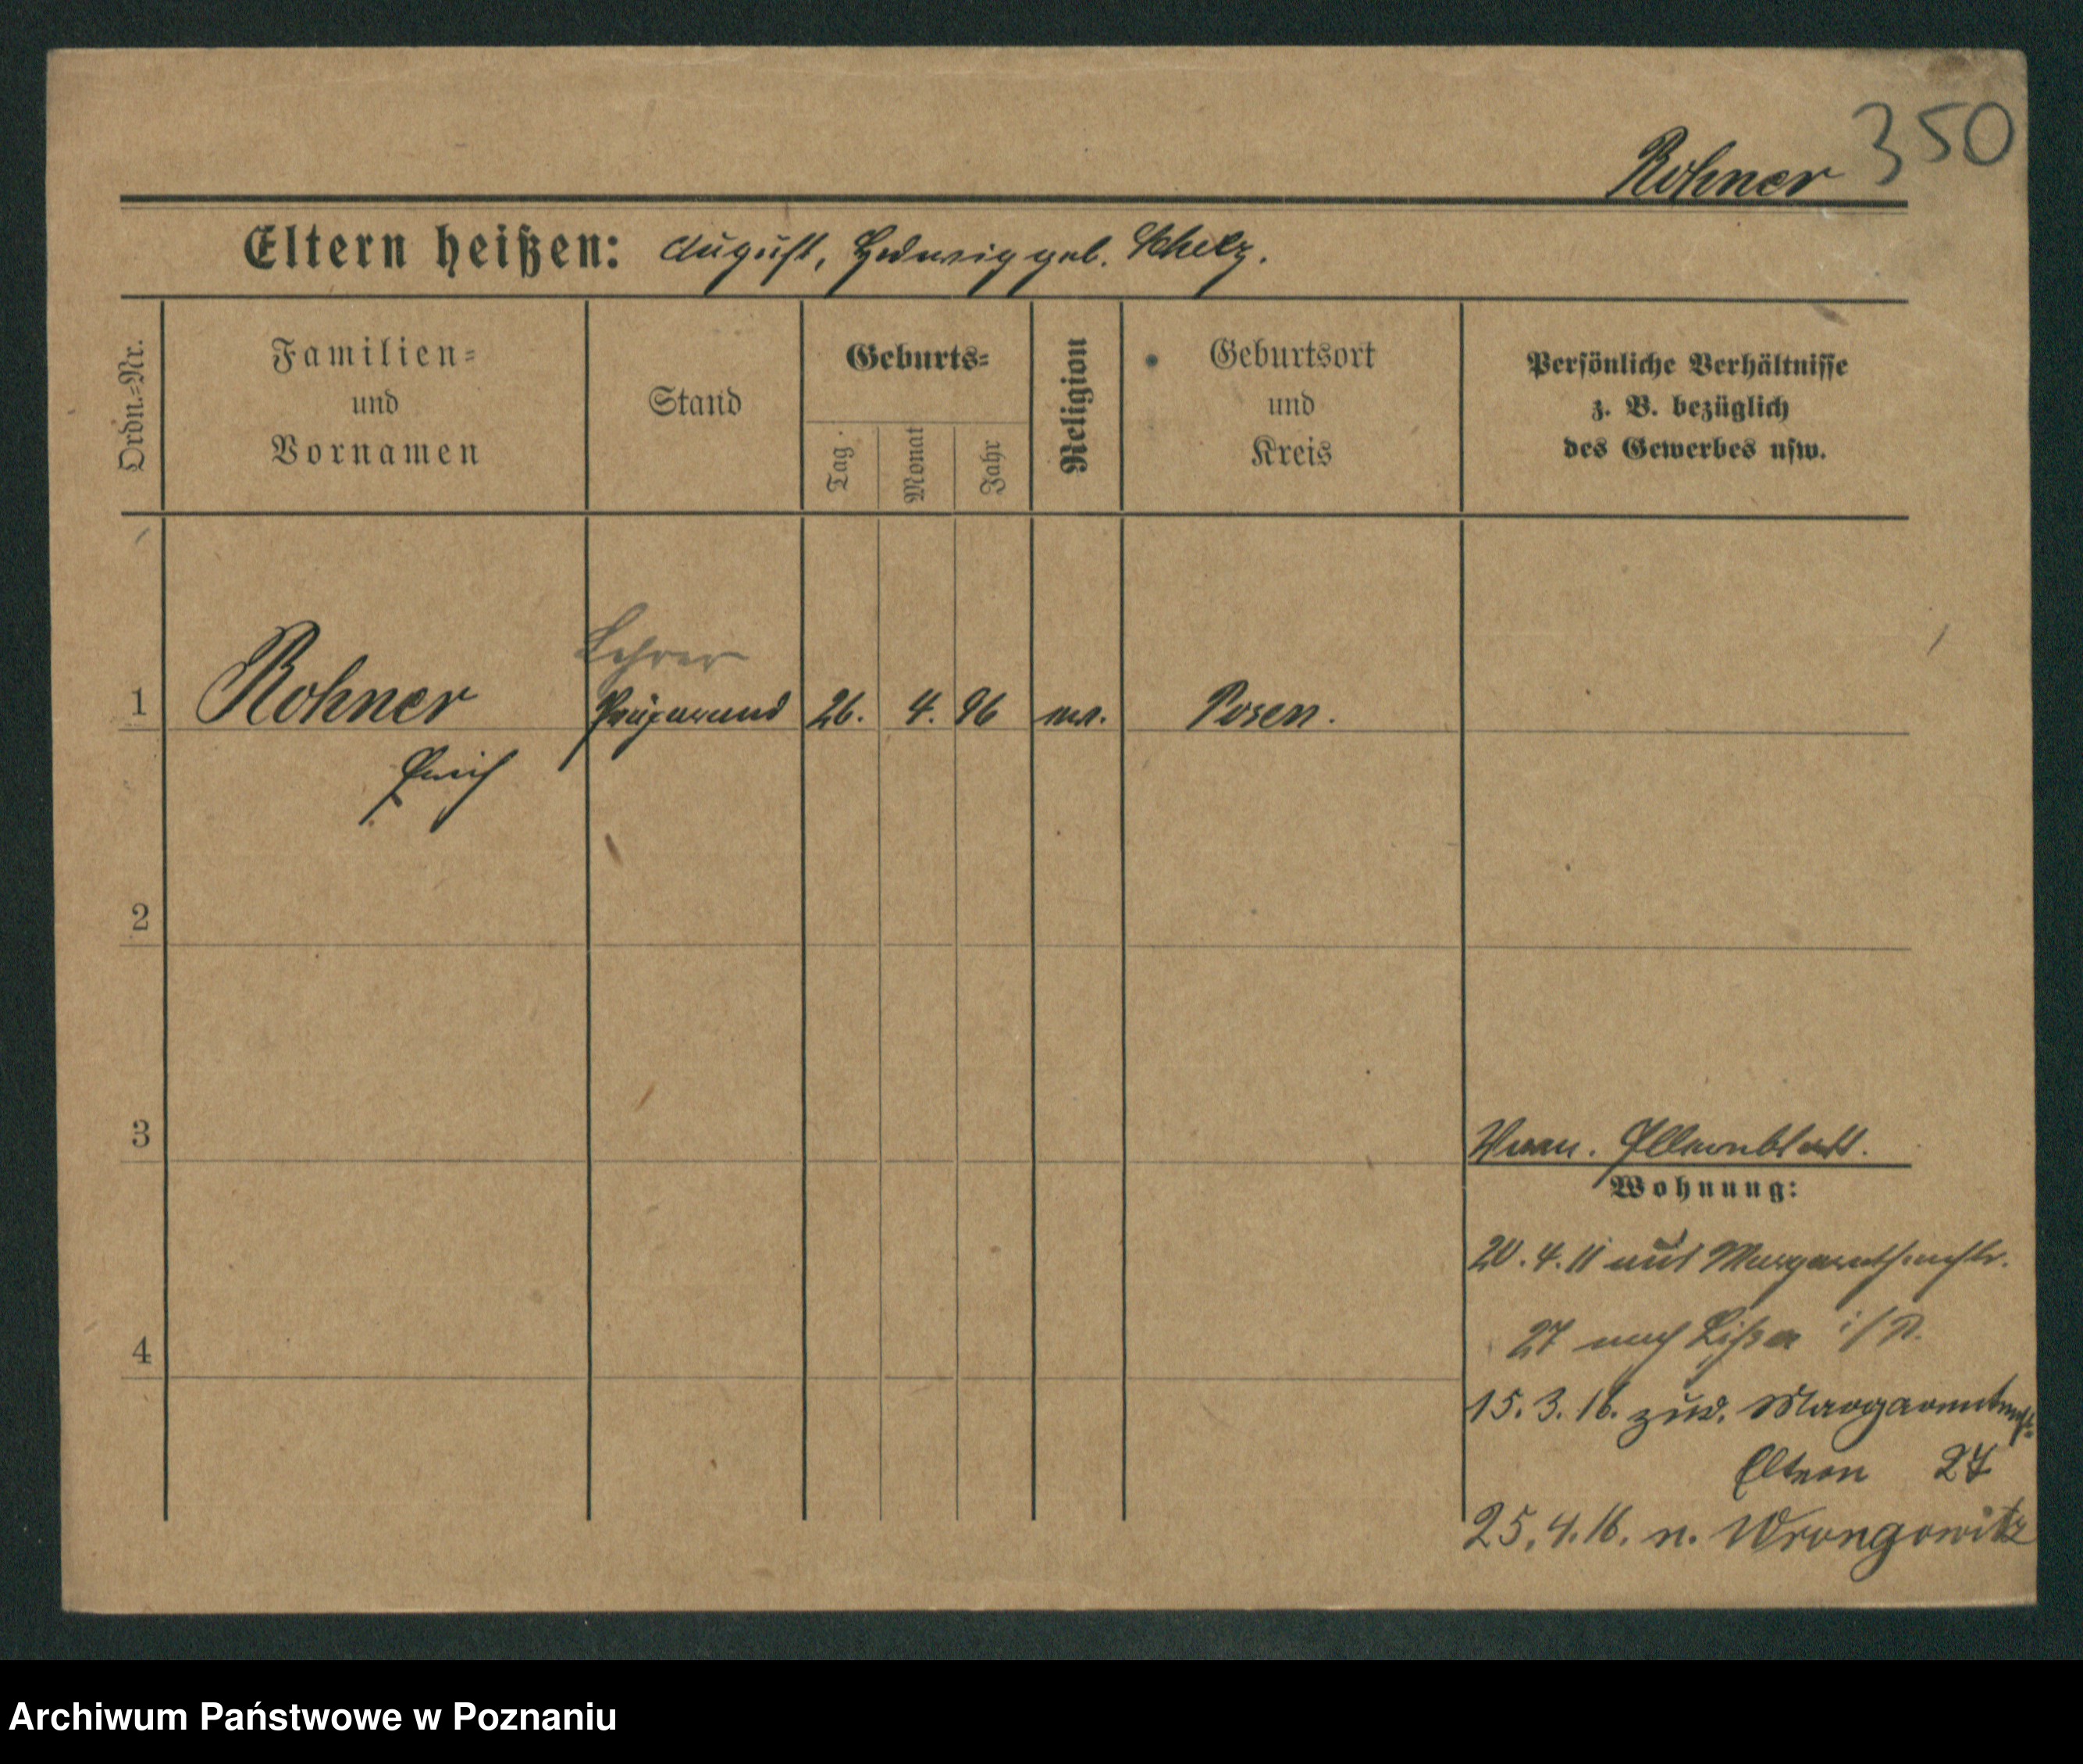 350
Rohner
Eltern heißen: August, Hedwig geb. Schelz.
Ordn.=Nr.
Familien=
und
Vornamen
Stand
Geburts=
Tag
Monat
Jahr
Religion
Geburtsort
und
Kreis
Persönliche Verhältnisse
z. B. bezüglich
des Gewerbes usw.
Lehrer
1 Rohner Präparand 26. 4. 96 ev. Posen.
Erich
2
3
Elternblatt.
Wohnung:
20. 4. 11 aus Margarethenstr.
4
27 nach Lissa i/P.
15. 3. 16. zur. Margarethenstr.
Eltern 27
25. 4. 16. n. Wrongowitz
Archiwum Państwowe w Poznaniu